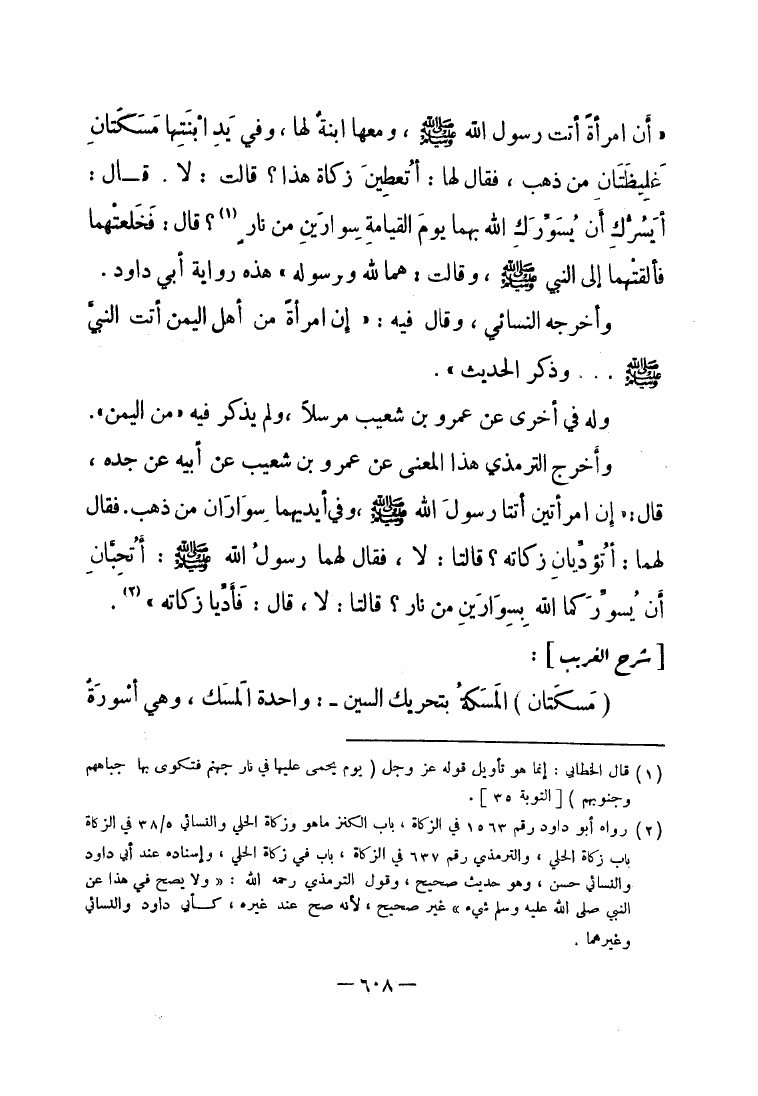 « أن امرأةً أتت رسول الله ﷺ ، ومعها ابنةٌ لها ، وفي يَدِ ابْنَتِها مَسَكَتَانِ
غَلِيظَتَان من ذهب ، فقال لها : أَتُعطِينَ زكاة هذا ؟ قالت : لا . قـــال :
أيَسُرُّكِ أن يُسَوِّرَكِ الله بهما يومَ القيامةِ سِوارَينِ من نارٍ (١) ؟ قال : فَخَلعتْهما
فألقتْهما إلى النبي ﷺ ، وقالت : هما لله ورسوله » هذه رواية أبي داود .
وأخرجه النسائي ، وقال فيه : « إن امرأةً من أهل اليمن أتت النبيَّ
ﷺ . . . وذكر الحديث » .
وله في أخرى عن عمرو بن شعيب مرسلاً ، ولم يذكر فيه « من اليمن» .
وأخرج الترمذي هذا المعنى عن عمرو بن شعيب عن أبيه عن جده ،
قال : « إن امرأتين أتتا رسولَ الله ﷺ ، وفي أيديهما سِوَارَان من ذهب . فقال
لهما : أتُؤدِّيانِ زكاته ؟ قالتا : لا ، فقال لهما رسولُ الله ﷺ : أَتُحِبَّانِ
أن يُسوِّرَكما الله بِسِوَارَينِ من نار ؟ قالتا : لا ، قال : فَأَدِّيا زكاته » (٢) .
[ شرح الغريب ] :
( مَسكَتَان ) الَمسَكَةُ بتحريك السين ـ : واحدة الَمسَك ، وهي أَسْوِرَةٌ
(١) قال الخطابي : إنما هو تأويل قوله عز وجل ( يوم يحمى عليها في نار جهنم فتكوى بها جباههم
وجنوبهم ) [ التوبة ٣٥ ] .
(٢) رواه أبو داود رقم ١٥٦٣ في الزكاة ، باب الكنز ماهو وزكاة الحلي والنسائي ٣٨/٥ في الزكاة
باب زكاة الحلي ، والترمذي رقم ٦٣٧ في الزكاة ، باب في زكاة الحلي ، وإسناده عند أبي داود
والنسائي حسن ، وهو حديث صحيح ، وقول الترمذي رحمه الله : « ولا يصح في هذا عن
النبي صلى الله عليه وسلم شيء » غير صحيح ، لأنه صح عند غيره ، كـــأبي داود والنسائي
وغيرهما .
— ٦٠٨ —